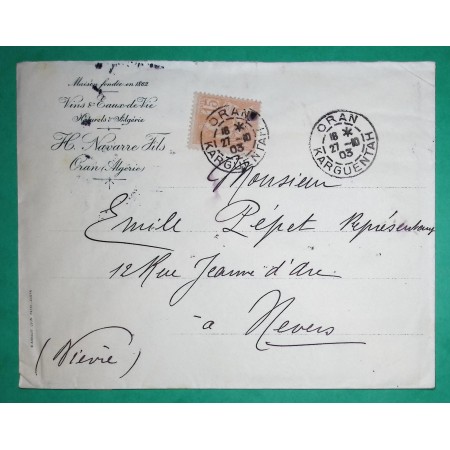 Maison fondée en 1862
Vins & Eaux-de-Vie
Naturels d'Algérie
H. Navarre Fils
Oran (Algérie)
ORAN
18 *
27 -10
03
KARGUENTAH
ORAN
18 *
27 -10
03
KARGUENTAH
Monsieur
Emile Pépet Représentant
12 Rue Jeanne d'Arc
à Nevers
(Nièvre)